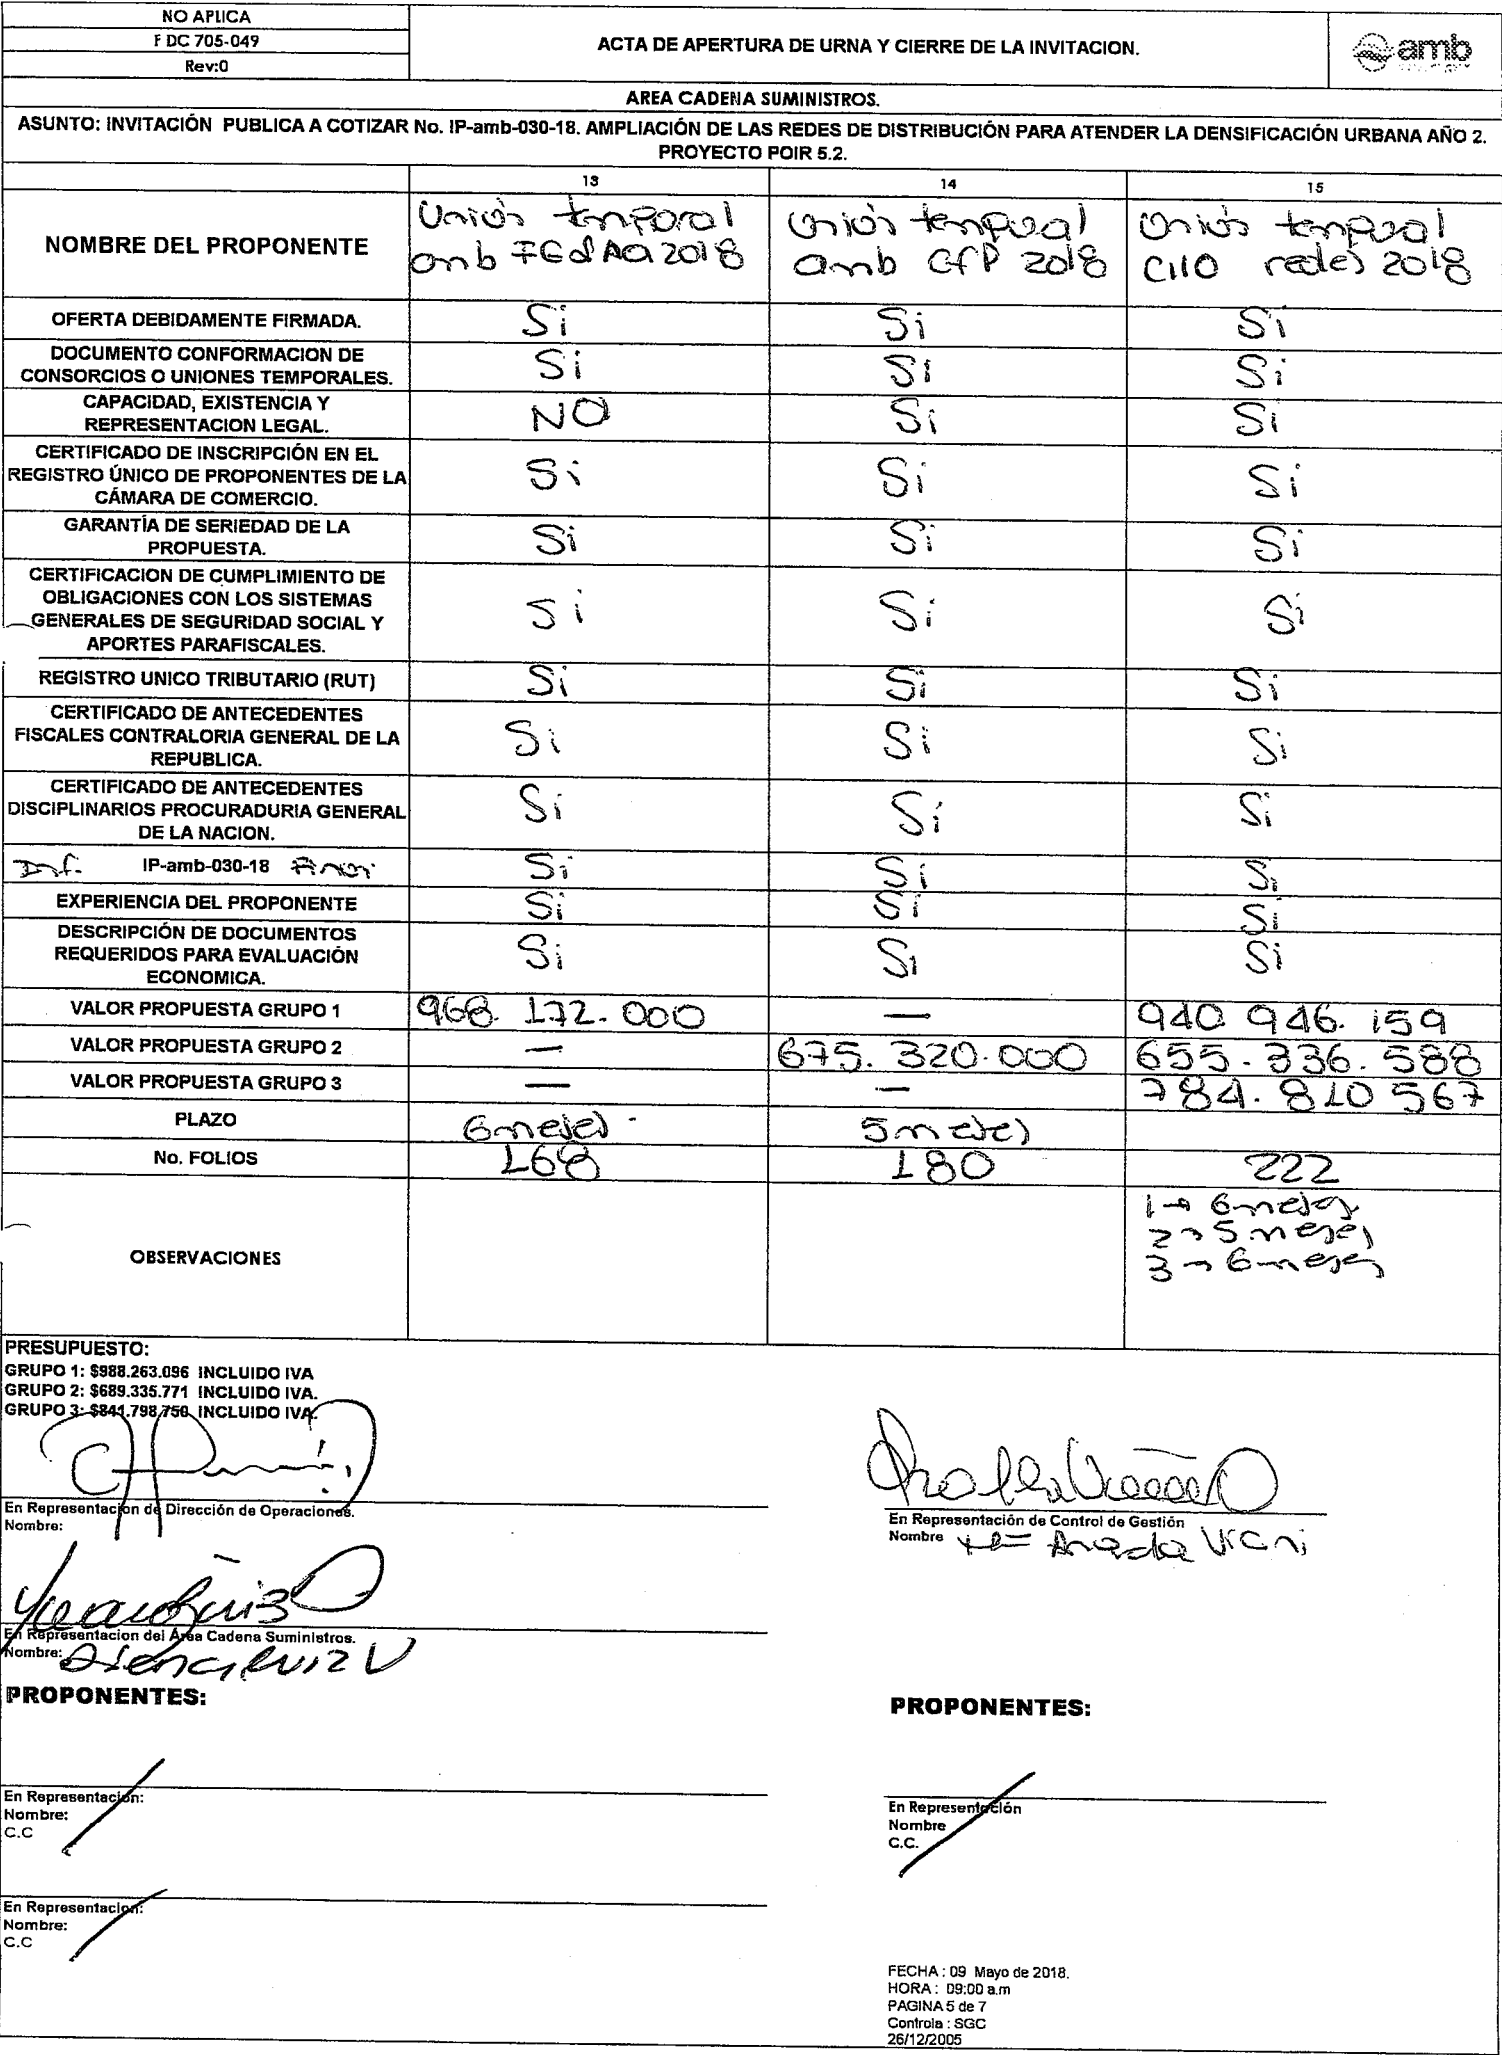 NO APLICA
F DC 705-049
Rev:0
ACTA DE APERTURA DE URNA Y CIERRE DE LA INVITACION.
amb
AREA CADENA SUMINISTROS.
ASUNTO: INVITACIÓN PUBLICA A COTIZAR No. IP-amb-030-18. AMPLIACIÓN DE LAS REDES DE DISTRIBUCIÓN PARA ATENDER LA DENSIFICACIÓN URBANA AÑO 2.
PROYECTO POIR 5.2.
13 14 15
NOMBRE DEL PROPONENTE
Unión temporal
amb 2018
Unión temporal
amb CFP 2018
Unión temporal
redes 2018
OFERTA DEBIDAMENTE FIRMADA. Si Si Si
DOCUMENTO CONFORMACION DE
CONSORCIOS O UNIONES TEMPORALES. Si Si Si
CAPACIDAD, EXISTENCIA Y
REPRESENTACION LEGAL. NO Si Si
CERTIFICADO DE INSCRIPCIÓN EN EL
REGISTRO ÚNICO DE PROPONENTES DE LA
CÁMARA DE COMERCIO. Si Si Si
GARANTÍA DE SERIEDAD DE LA
PROPUESTA. Si Si Si
CERTIFICACION DE CUMPLIMIENTO DE
OBLIGACIONES CON LOS SISTEMAS
GENERALES DE SEGURIDAD SOCIAL Y
APORTES PARAFISCALES. Si Si Si
REGISTRO UNICO TRIBUTARIO (RUT) Si Si Si
CERTIFICADO DE ANTECEDENTES
FISCALES CONTRALORIA GENERAL DE LA
REPUBLICA. Si Si Si
CERTIFICADO DE ANTECEDENTES
DISCIPLINARIOS PROCURADURIA GENERAL
DE LA NACION. Si Si Si
Inf. IP-amb-030-18 Si Si Si
EXPERIENCIA DEL PROPONENTE Si Si Si
DESCRIPCIÓN DE DOCUMENTOS
REQUERIDOS PARA EVALUACIÓN
ECONOMICA. Si Si Si
VALOR PROPUESTA GRUPO 1 968.172.000 — 940 946.159
VALOR PROPUESTA GRUPO 2 — 675.320.000 655.336.588
VALOR PROPUESTA GRUPO 3 — — 784.810 567
PLAZO 6 meses 5 meses
No. FOLIOS 168 180 222
OBSERVACIONES
1 → 6 meses
2 → 5 meses
3 → 6 meses
PRESUPUESTO:
GRUPO 1: $988.263.096 INCLUIDO IVA
GRUPO 2: $689.335.771 INCLUIDO IVA.
GRUPO 3: $841.798.750 INCLUIDO IVA.
En Representacion de Dirección de Operaciones.
Nombre:
En Representación de Control de Gestión
Nombre
En Representacion del Área Cadena Suministros.
Nombre: Ruiz V
PROPONENTES:
PROPONENTES:
En Representacion:
Nombre:
C.C
En Representación
Nombre
C.C.
En Representacion:
Nombre:
C.C
FECHA : 09 Mayo de 2018.
HORA : 09:00 a.m
PAGINA 5 de 7
Controla : SGC
26/12/2005